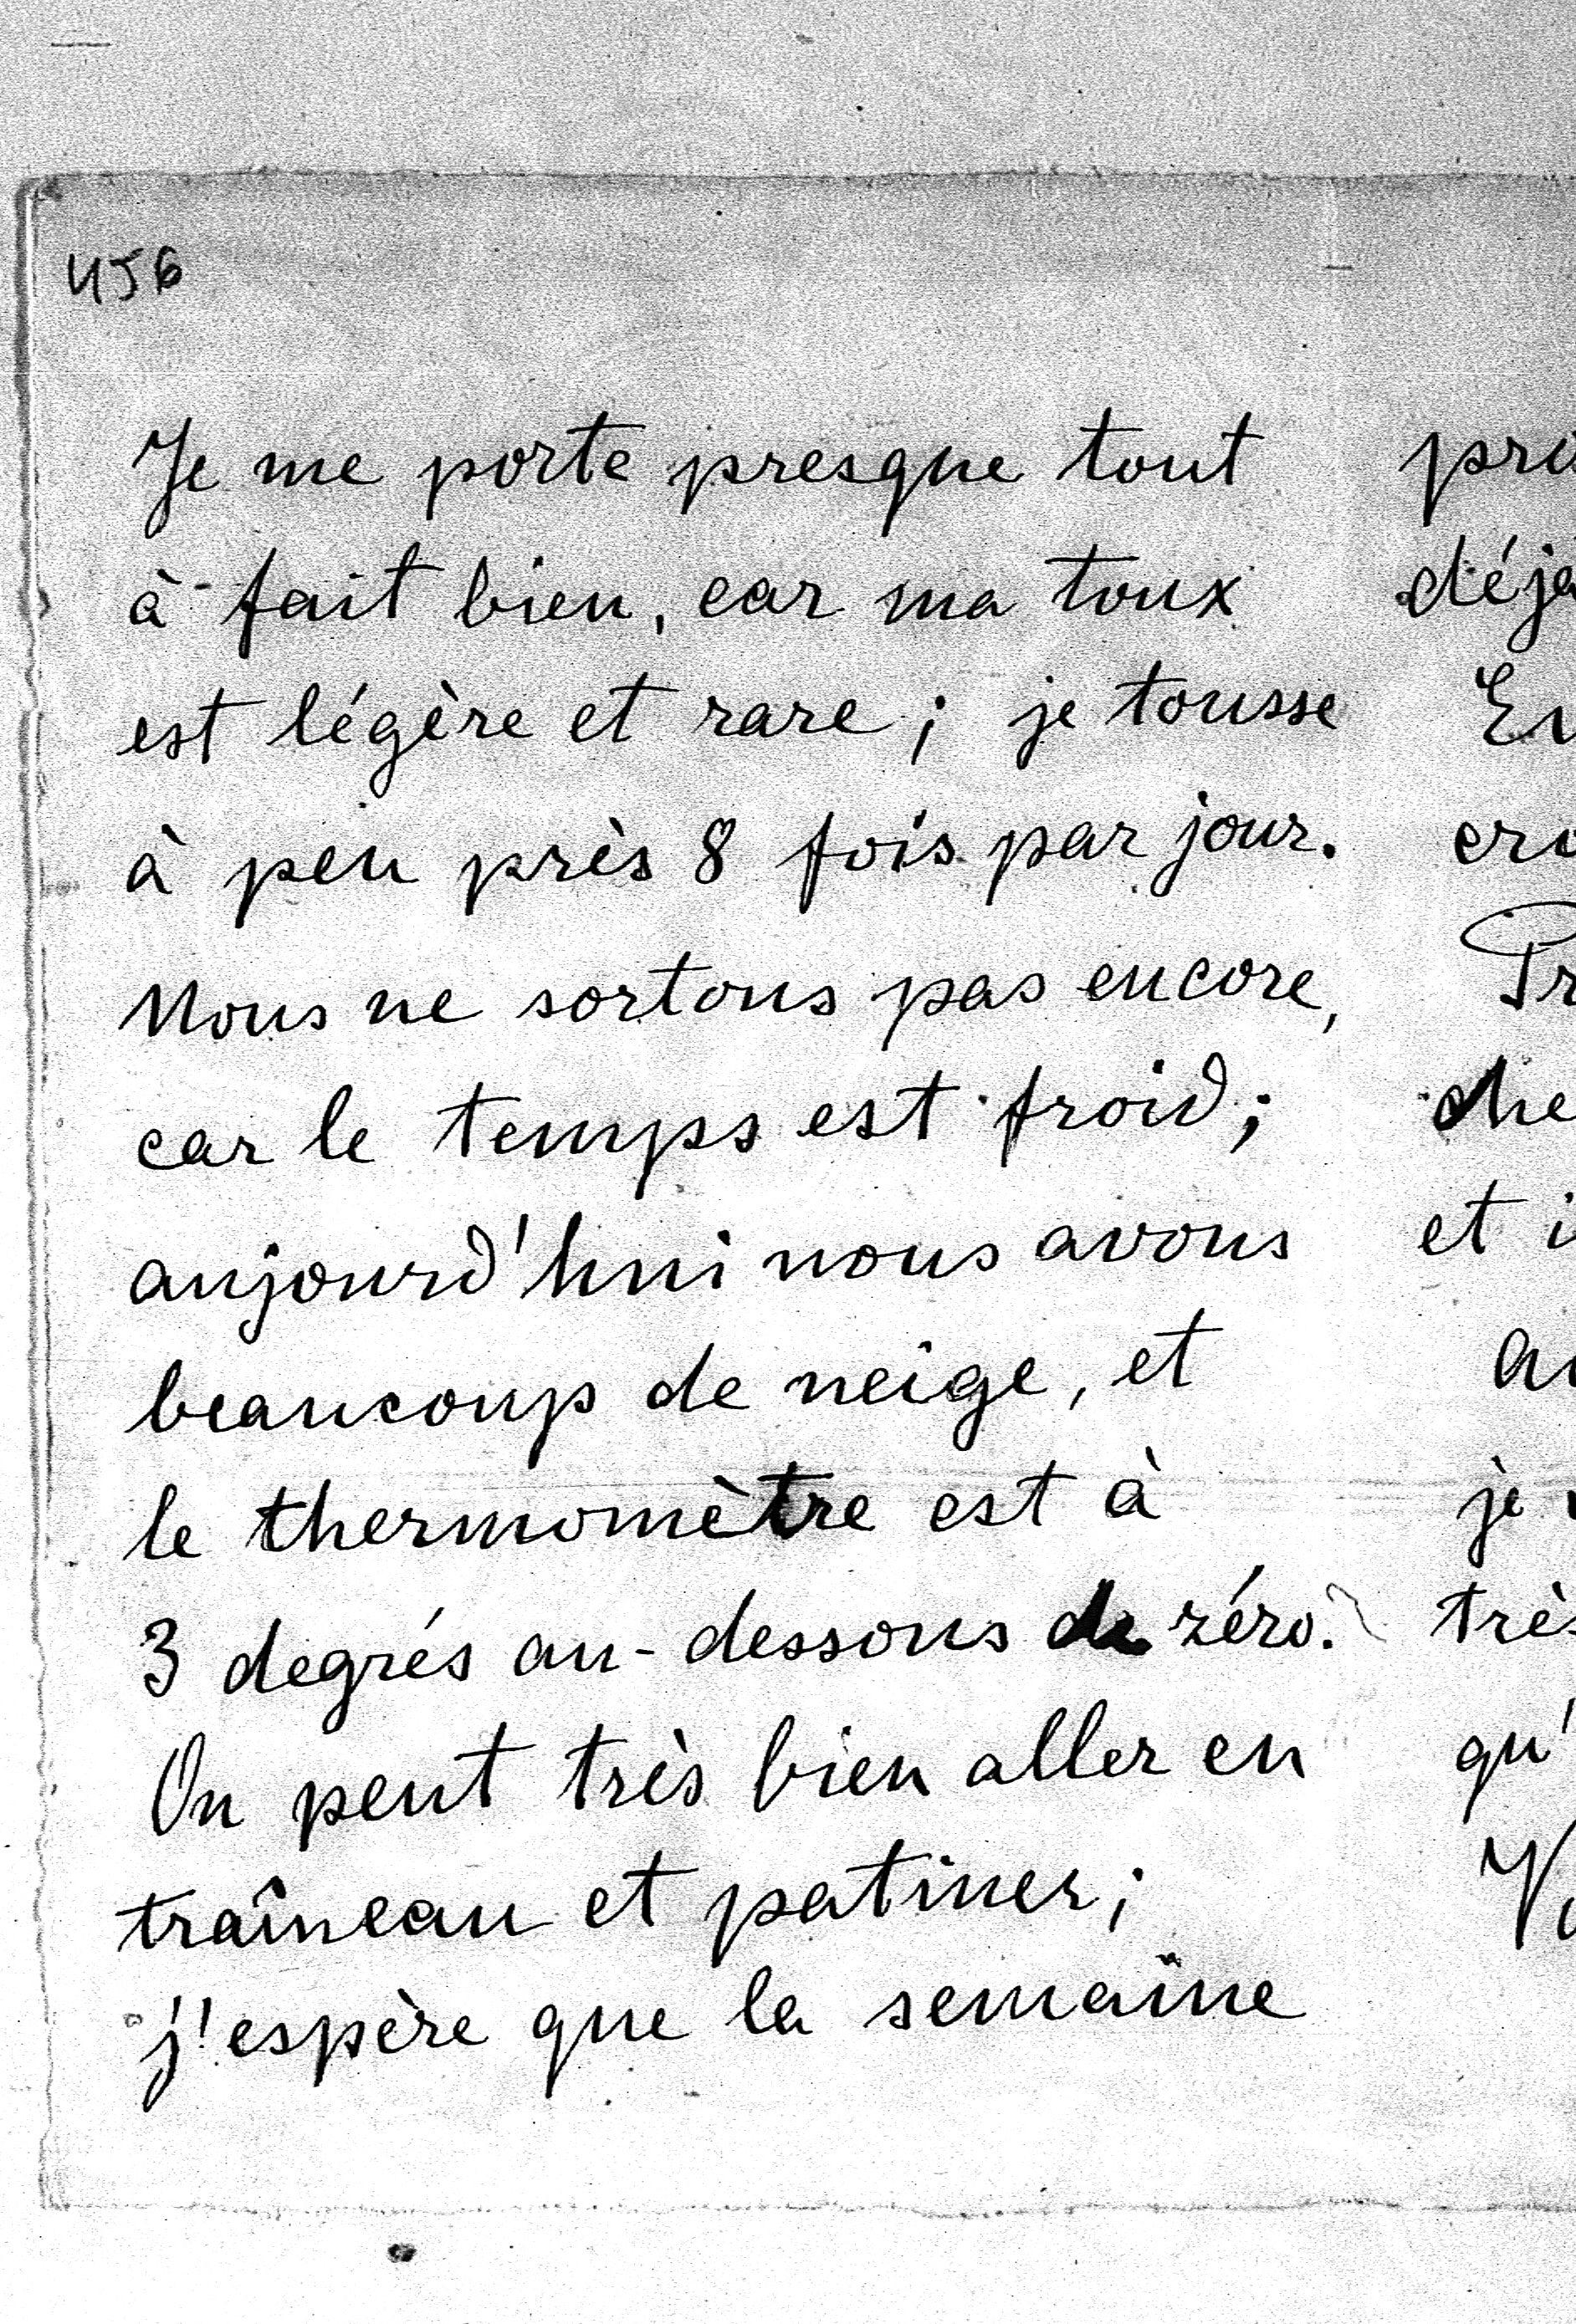 456
Je me porte presque tout
à fait bien, car ma toux
est légère et rare; je tousse
à peu près 8 fois par jour.
Nous ne sortons pas encore,
car le temps est froid;
aujourd'hui nous avons
beaucoup de neige, et
le thermomètre est à
3 degrés au-dessous de zéro.
On peut très bien aller en
traîneau et patiner;
j'espère que la semaine
déjà
et
je
très
qu'